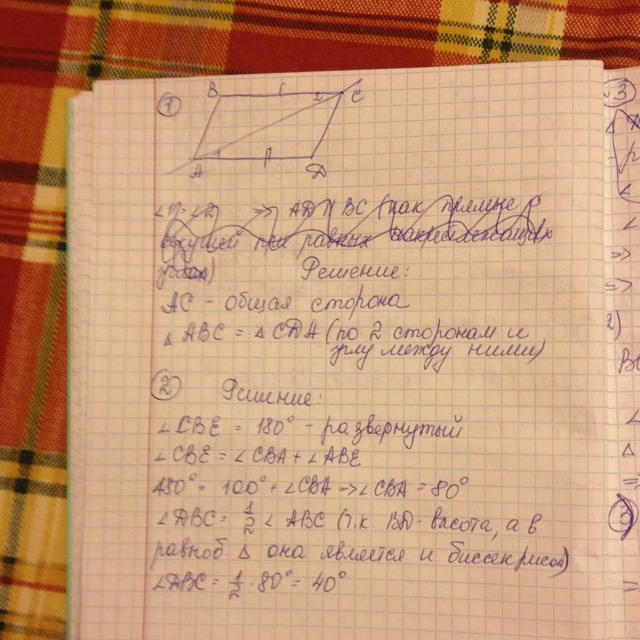 1
B
C
2
A
D
∠1=∠2 => AD || BC (как прямые с
секущей при равных накрестлежащих
углах) Решение:
AC - общая сторона
△ ABC = △ CDA (по 2 сторонам и
углу между ними)
2 Решение:
∠CBE = 180° - развернутый
∠CBE = ∠CBA + ∠ABE
180° = 100° + ∠CBA => ∠CBA = 80°
∠DBC = 1/2 ∠ ABC (т.к BD - высота, а в
равноб. △ она является и биссектрисой)
∠DBC = 1/2 · 80° = 40°
3